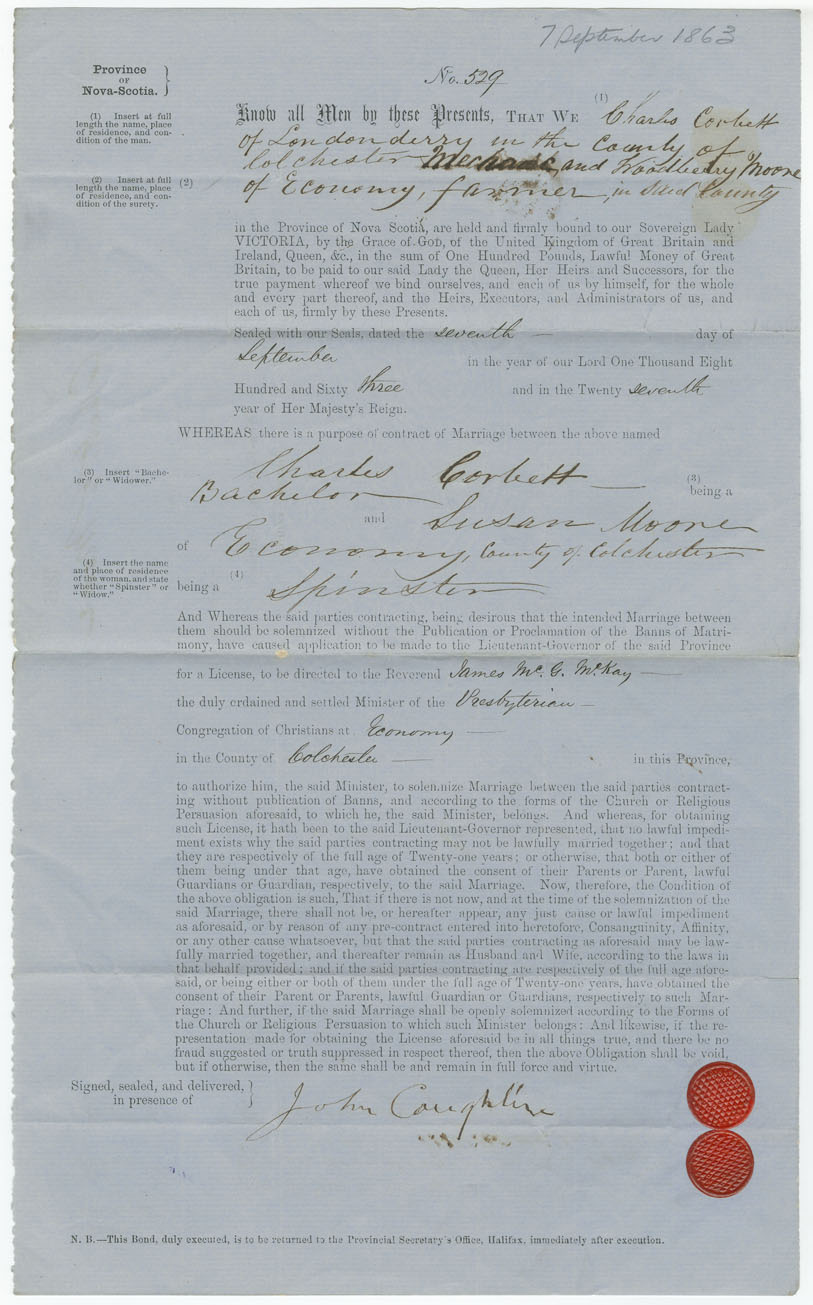 7 September 1863
Province
OF
Nova-Scotia.
No. 529
(1) Insert at full
length the name, place
of residence, and con-
dition of the man.
(1)
Know all Men by these Presents, THAT WE Charles Corbett
of Londonderry in the County of
Colchester Mechanic, and Woodberry Moore
(2) Insert at full
length the name, place
of residence, and con-
dition of the surety.
(2)
of Economy, farmer, in said County
in the Province of Nova Scotia, are held and firmly bound to our Sovereign Lady
VICTORIA, by the Grace of GOD, of the United Kingdom of Great Britain and
Ireland, Queen, &c., in the sum of One Hundred Pounds, Lawful Money of Great
Britain, to be paid to our said Lady the Queen, Her Heirs and Successors, for the
true payment whereof we bind ourselves, and each of us by himself, for the whole
and every part thereof, and the Heirs, Executors, and Administrators of us, and
each of us, firmly by these Presents.
Sealed with our Seals, dated the seventh — day of
September in the year of our Lord One Thousand Eight
Hundred and Sixty three and in the Twenty seventh
year of Her Majesty's Reign.
WHEREAS there is a purpose of contract of Marriage between the above named
(3) Insert "Bache-
lor" or "Widower."
Charles Corbett — (3)
being a
Bachelor
and Susan Moore
of Economy, County of Colchester
(4) Insert the name
and place of residence
of the woman, and state
whether "Spinster" or
"Widow."
being a (4) Spinster
And Whereas the said parties contracting, being desirous that the intended Marriage between
them should be solemnized without the Publication or Proclamation of the Banns of Matri-
mony, have caused application to be made to the Lieutenant-Governor of the said Province
for a License, to be directed to the Reverend James Mc. G. McKay —
the duly ordained and settled Minister of the Presbyterian —
Congregation of Christians at Economy —
in the County of Colchester — in this Province,
to authorize him, the said Minister, to solemnize Marriage between the said parties contract-
ing without publication of Banns, and according to the forms of the Church or Religious
Persuasion aforesaid, to which he, the said Minister, belongs. And whereas, for obtaining
such License, it hath been to the said Lieutenant-Governor represented, that no lawful impedi-
ment exists why the said parties contracting may not be lawfully married together; and that
they are respectively of the full age of Twenty-one years; or otherwise, that both or either of
them being under that age, have obtained the consent of their Parents or Parent, lawful
Guardians or Guardian, respectively, to the said Marriage. Now, therefore, the Condition of
the above obligation is such, That if there is not now, and at the time of the solemnization of the
said Marriage, there shall not be, or hereafter appear, any just cause or lawful impediment
as aforesaid, or by reason of any pre-contract entered into heretofore, Consanguinity, Affinity,
or any other cause whatsoever, but that the said parties contracting as aforesaid may be law-
fully married together, and thereafter remain as Husband and Wife, according to the laws in
that behalf provided; and if the said parties contracting are respectively of the full age afore-
said, or being either or both of them under the full age of Twenty-one years, have obtained the
consent of their Parent or Parents, lawful Guardian or Guardians, respectively to such Mar-
riage: And further, if the said Marriage shall be openly solemnized according to the Forms of
the Church or Religious Persuasion to which such Minister belongs: And likewise, if the re-
presentation made for obtaining the License aforesaid be in all things true, and there be no
fraud suggested or truth suppressed in respect thereof, then the above Obligation shall be void,
but if otherwise, then the same shall be and remain in full force and virtue.
Signed, sealed, and delivered,
in presence of
John Coughlin
N. B.—This Bond, duly executed, is to be returned to the Provincial Secretary's Office, Halifax, immediately after execution.